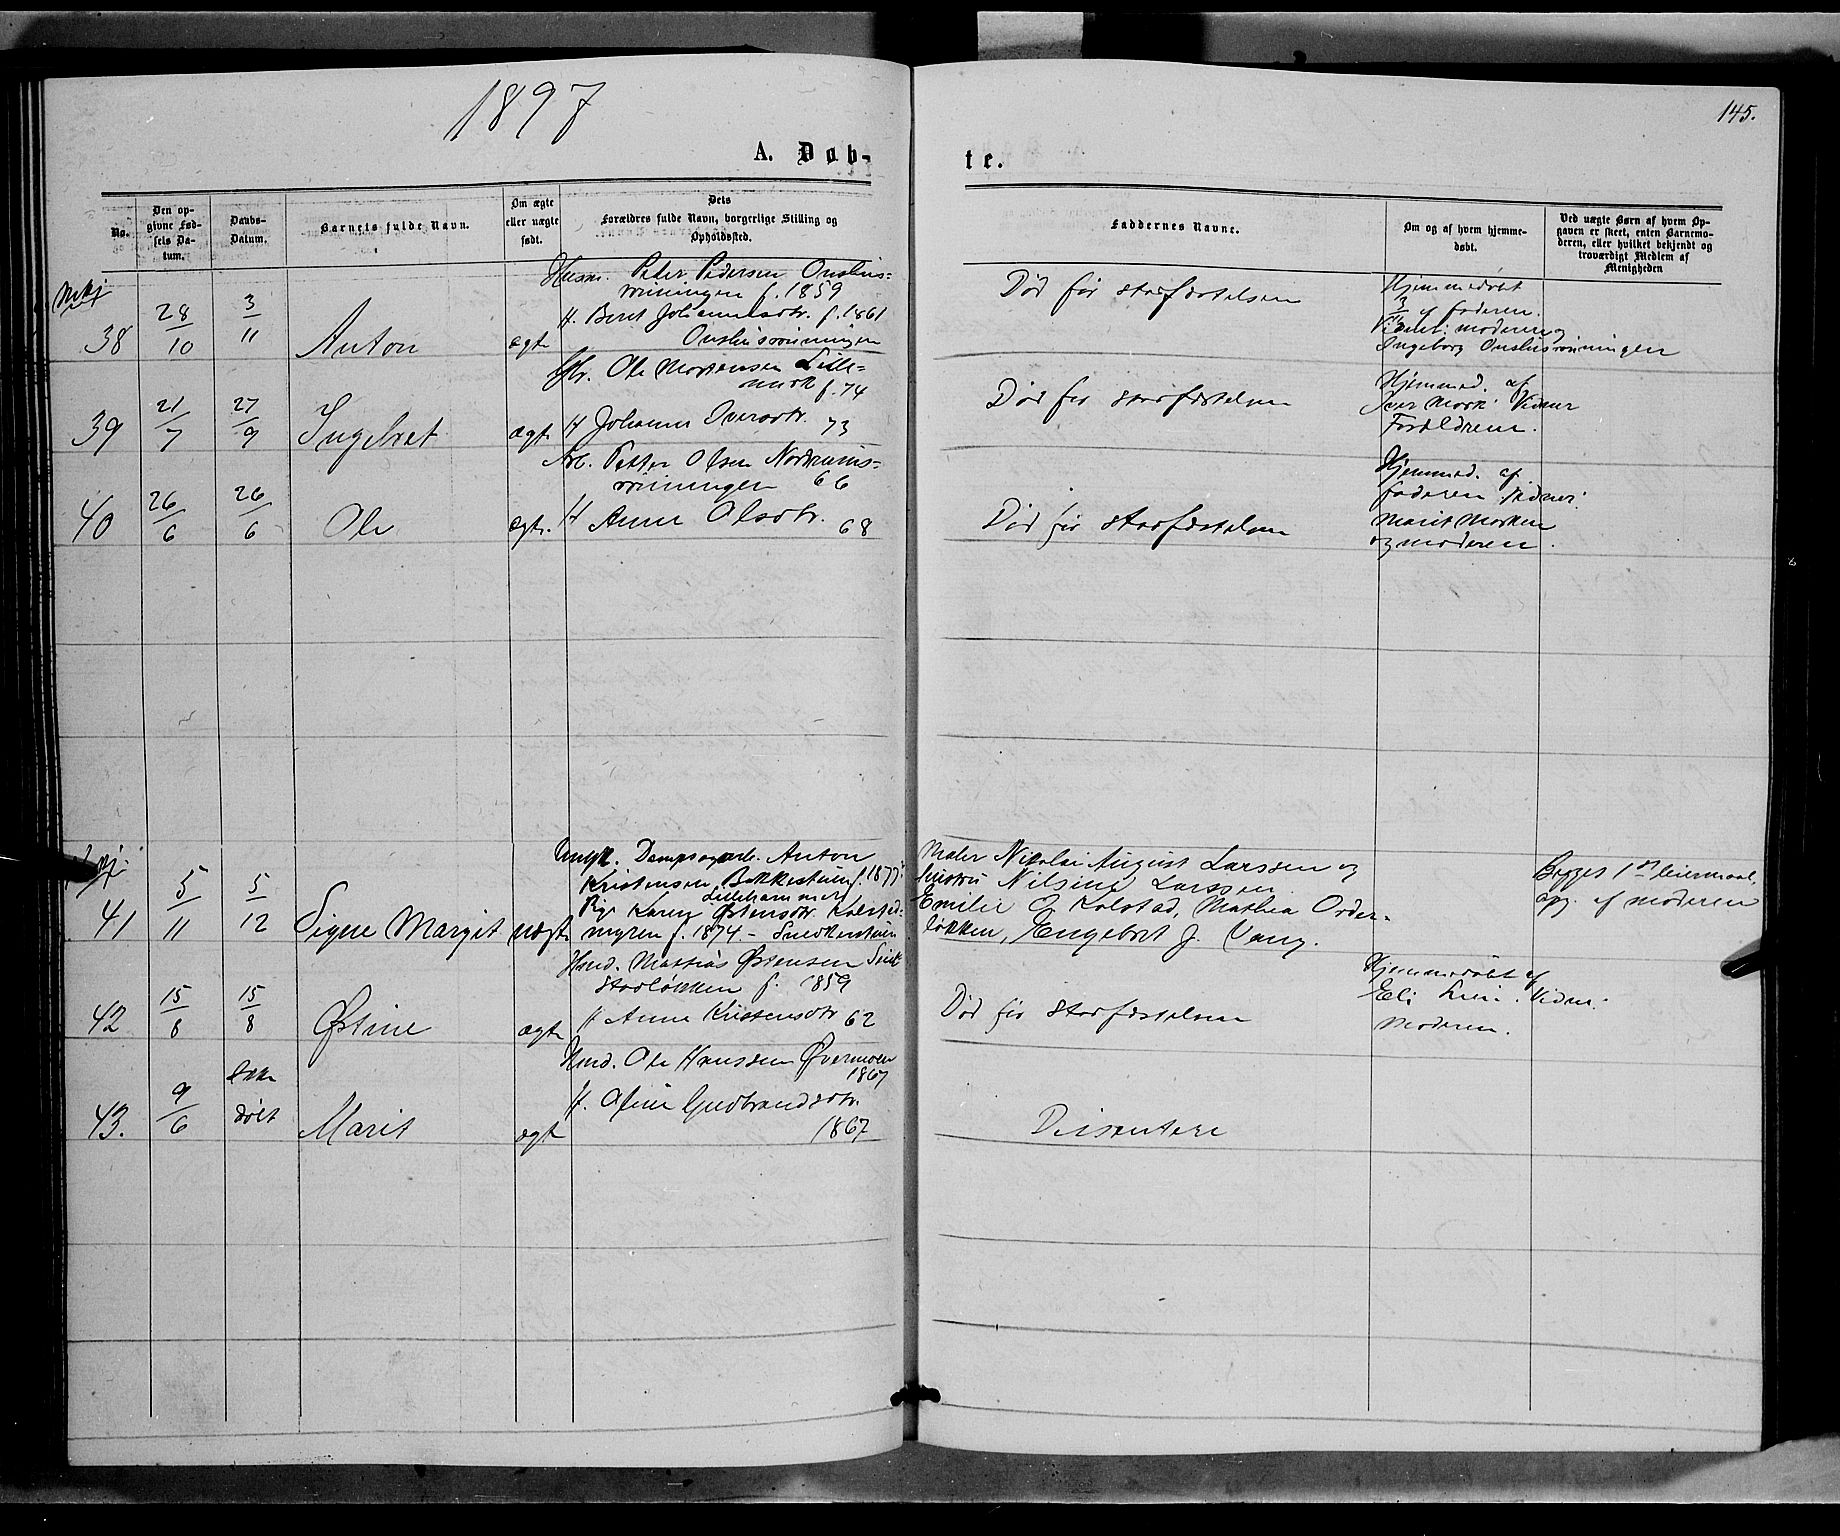 1897
145.
A. Døb-
te.
No.
Den op-
givne Fød-
sels Da-
tum.
Daabs-
Datum.
Barnets fulde Navn.
Om ægte
eller uægte
født.
Dets
Forældres fulde Navn, borgerlige Stilling og
Opholdssted.
Faddernes Navne.
Om og af hvem hjemme-
døbt.
Ved uægte Børn af hvem Op-
gaven er skeet, enten Barnemo-
deren, eller hvilket bekjendt og
troværdigt Medlem af
Menigheden
38
28/10
3/11
Anton
ægte
Husm. Peter Pedersen Onshus-
rønningen f. 1859
H. Berit Johannesdtr. f. 1861
Onshusrønningen
Død før stadfæstelsen
Hjemmedøbt
3/11 af faderen.
Vidner: moderen og
Ingeborg Onshusrønningen
39
21/7
27/9
Ingebret
ægte
Ole Mortensen Lille-
mork f. 74
H Johanne Iversdtr. 73
Død før stadfæstelsen
Hjemmed. af
Iver Mork. Vidner
Forældrene.
40
26/6
26/6
Ole
ægte
Arb. Petter Olsen Nordrums-
rønningen 66
H Anne Olsdtr. 68
Død før stadfæstelsen
Hjemmed. af
faderen. Vidner:
Marit Morken
og moderen.
41
5/11
5/12
Signe Margit
uægte
Ungk. Dampsagarb. Anton
Kristensen Bakkestuen f. 1877
Lillehammer
Pige Karen Østensdtr. Kolstad-
myren f. 1874 - Snedkerstuen
Maler Nikolai August Larssen og
hustru Nilsine Larssen
Emilie O. Kolstad, Mathea Order-
løkken, Engebret J. Vang.
Begges 1ste leiermaal,
opg. af moderen
42
15/8
15/8
Østine
ægte
Hmd. Mathias Østensen
stadløkken f. 1859
H Anne Kristensdtr 62
Død før stadfæstelsen
Hjemmedøbt af
Eli Lien. Vidne:
Moderen.
43.
9/6
Ikke
døbt
Marit
ægte
Hmd. Ole Hanssen Øvermoen
1867
H. Oline Gudbrandsdtr.
1867
Dissentere